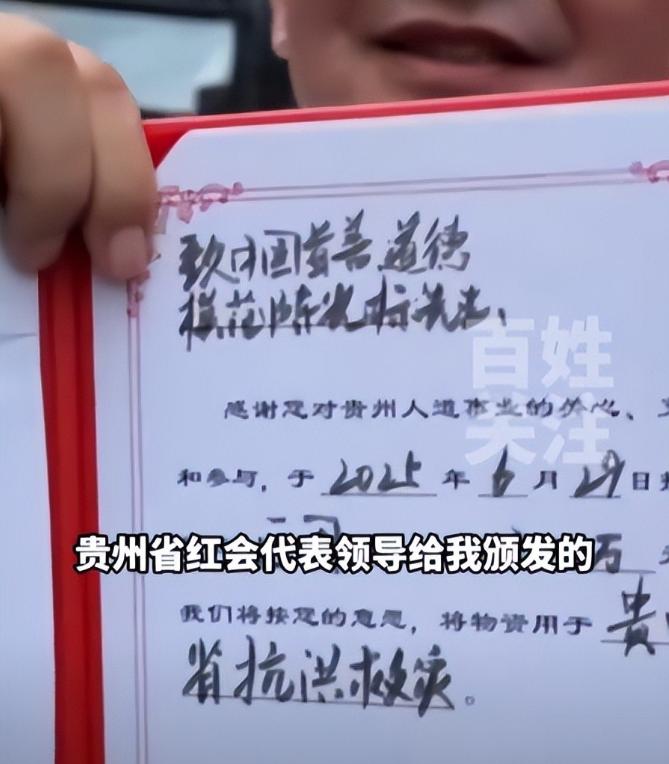 致中国首善道德
模范陈光标先生：
百姓
关注
感谢您对贵州人道事业的关心、
和参与，于 2025 年 6 月 29 日
万
贵州省红会代表领导给我颁发的
我们将按您的意思，将物资用于 贵
省抗洪救灾。